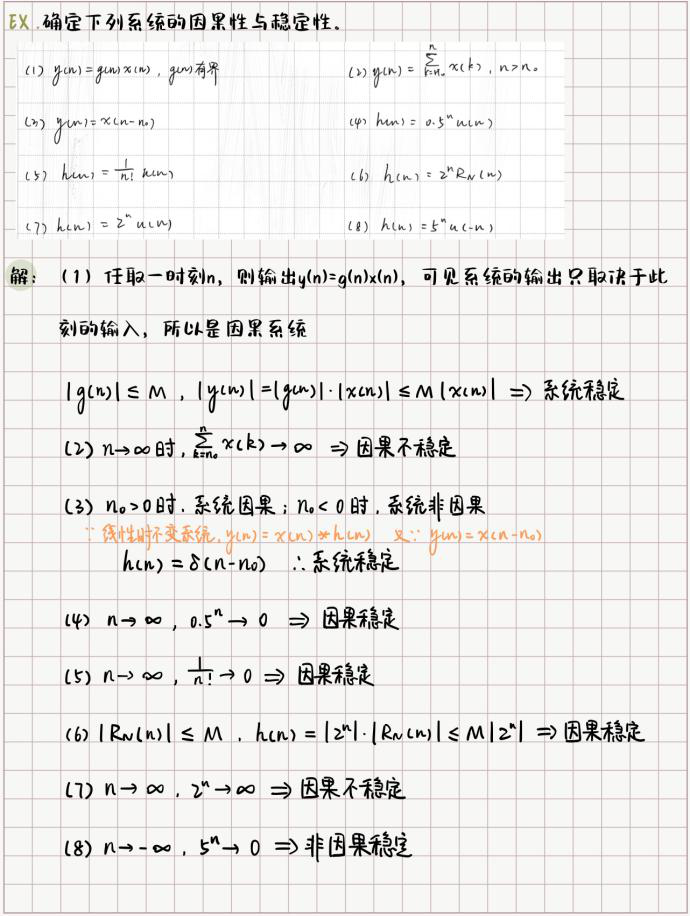 EX.确定下列系统的因果性与稳定性。
(1) y(n) = g(n)x(n), g(n)有界 (2) y(n) = \sum_{k=n₀}^{n} x(k), n>n₀
(3) y(n) = x(n-n₀) (4) h(n) = 0.5ⁿu(n)
(5) h(n) = \frac{1}{n!} u(n) (6) h(n) = 2ⁿR_N(n)
(7) h(n) = 2ⁿu(n) (8) h(n) = 5ⁿu(-n)
解: (1) 任取一时刻n, 则输出y(n)=g(n)x(n), 可见系统的输出只取决于此
刻的输入, 所以是因果系统
|g(n)| ≤ M , |y(n)| = |g(n)|·|x(n)| ≤ M|x(n)| ⇒ 系统稳定
(2) n→∞时, \sum_{k=n₀}^{n} x(k) → ∞ ⇒ 因果不稳定
(3) n₀>0时, 系统因果; n₀<0时, 系统非因果
∵ 线性时不变系统, y(n) = x(n) * h(n) 又∵ y(n) = x(n-n₀)
h(n) = δ(n-n₀) ∴系统稳定
(4) n→∞, 0.5ⁿ→0 ⇒ 因果稳定
(5) n→∞, \frac{1}{n!}→0 ⇒ 因果稳定
(6) |R_N(n)| ≤ M , h(n) = |2ⁿ|·|R_N(n)| ≤ M|2ⁿ| ⇒ 因果稳定
(7) n→∞, 2ⁿ→∞ ⇒ 因果不稳定
(8) n→-∞, 5ⁿ→0 ⇒ 非因果稳定